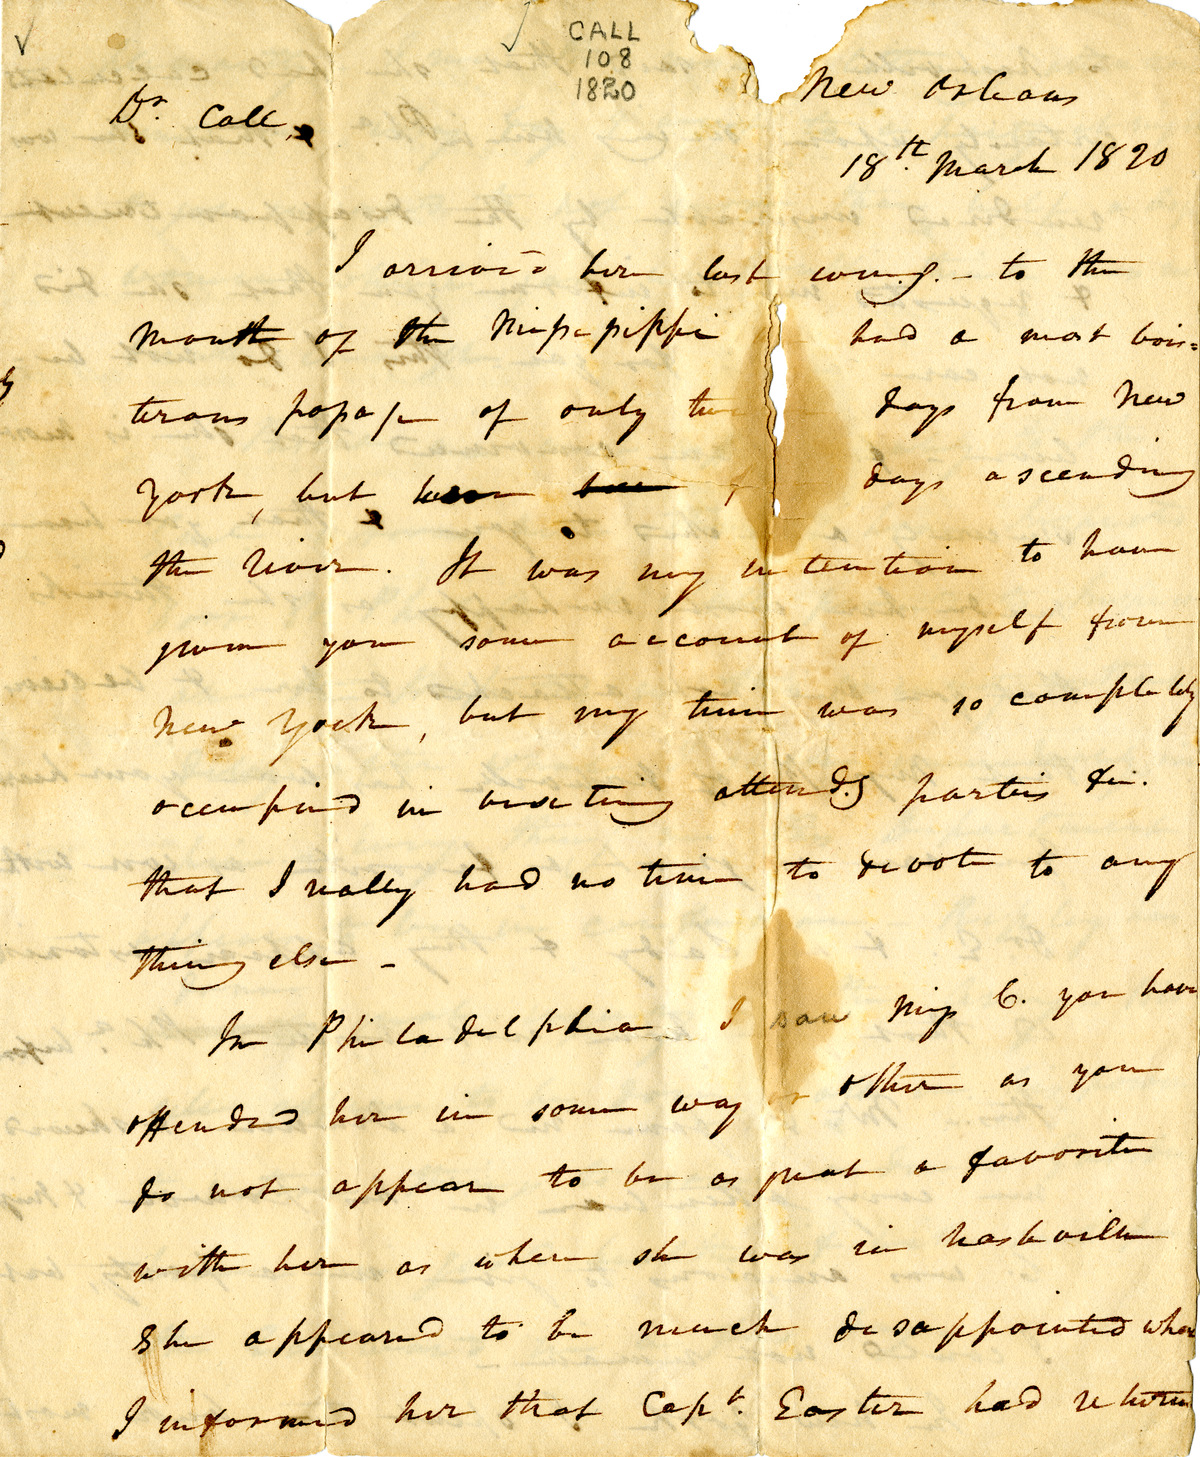 CALL
108
1820
New Orleans
Dr. Call,
18th. March 1820
I arriv'd here last evening. - to the
mouth of the Mississippi had a most bois=
terous passage of only days from New
York, but been days ascending
the River. It was my intention to have
given you some account of myself from
New York, but my time was so completely
occupied in visiting attend.g parties &c.
that I really had no time to devote to any
thing else -
In Philadelphia I saw Miss C. you have
offended her in some way or other as you
do not appear to be as great a favorite
with her as when she was in Nashville
She appeared to be much disappointed when
I informed her that Capt. Easter had return